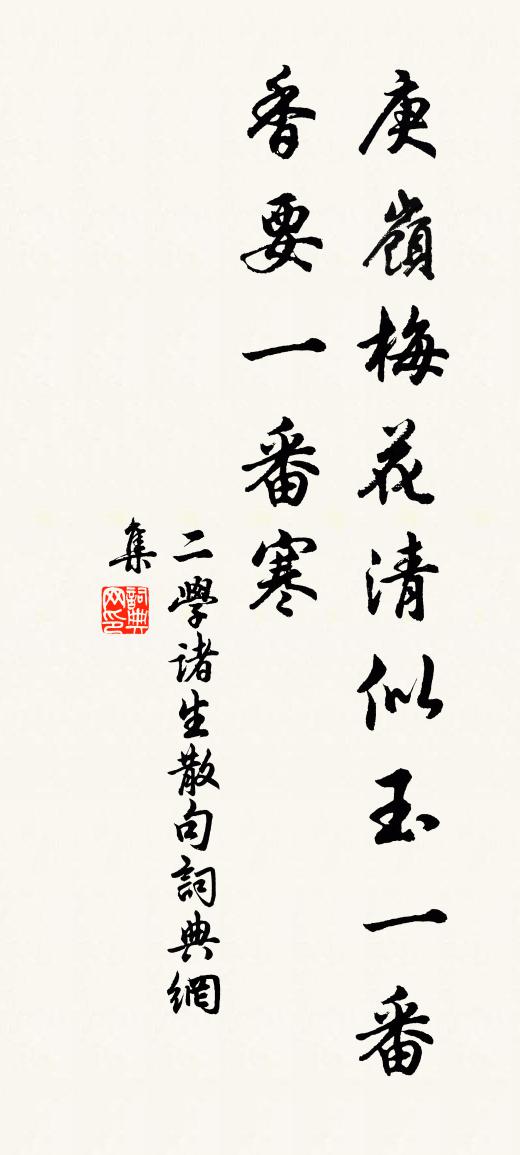 庚嶺梅花清似玉一番
香要一番寒
二學诸生散句詞典網
集
詞典
网印